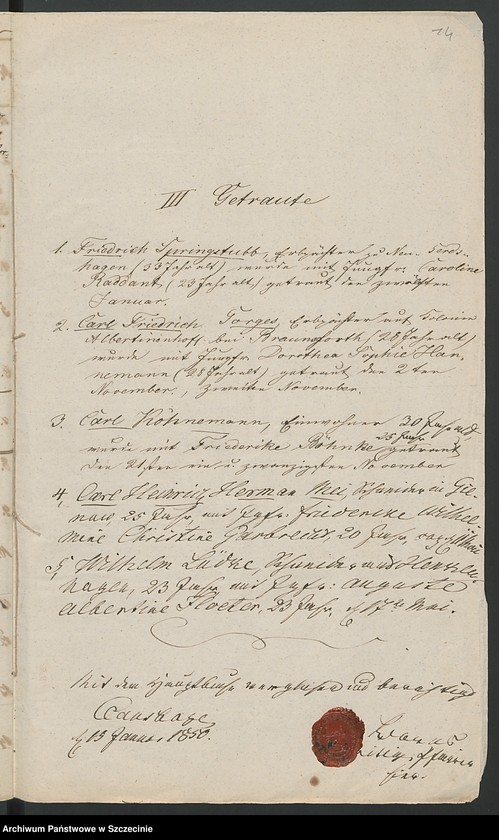 14
III Getraute
1. Friedrich Springstubb, Erbpächter zu Neu-
hagen (33 Jahr alt) wurde mit Jungfr. Caroline
Raddant, (23 Jahr alt) getraut den zwölften
Januar.
2. Carl Friedrich Görges, Erbpächter auf Kolonie
Albertinenhoff bei Braunsforth (28 Jahr alt)
wurde mit Jungfr. Dorothea Sophie Han-
nemann (28 Jahr alt) getraut den 2ten
November, zweiten November.
3. Carl Köhnemann, Einwohner 30 Jahr alt,
wurde mit Friederike Röhnke 25 Jahr getraut
den 21sten ein u zwanzigsten November
4, Carl Heinrich Herman Mei, Schneider in
25 Jahr, mit Jgfr. Friedericke Wilhel
mine Christine 20 Jahr,
5, Wilhelm Lüdke, Schneider aus
hagen, 23 Jahr mit Jgfr: Auguste
Albertine Floeter, 23 Jahr, 17te Mai.
Mit dem Hauptbuche verglichen und berichtigt
13 Januar 1850.
Archiwum Państwowe w Szczecinie